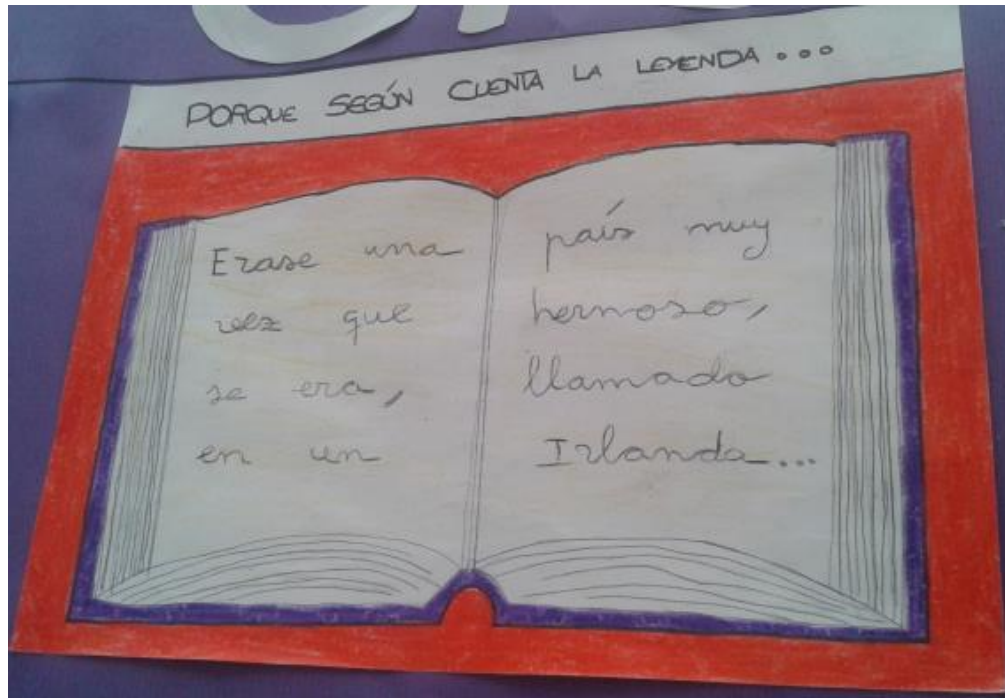 PORQUE SEGÚN CUENTA LA LEYENDA...
Erase una
vez que
se era,
en un
país muy
hermoso,
llamado
Irlanda...